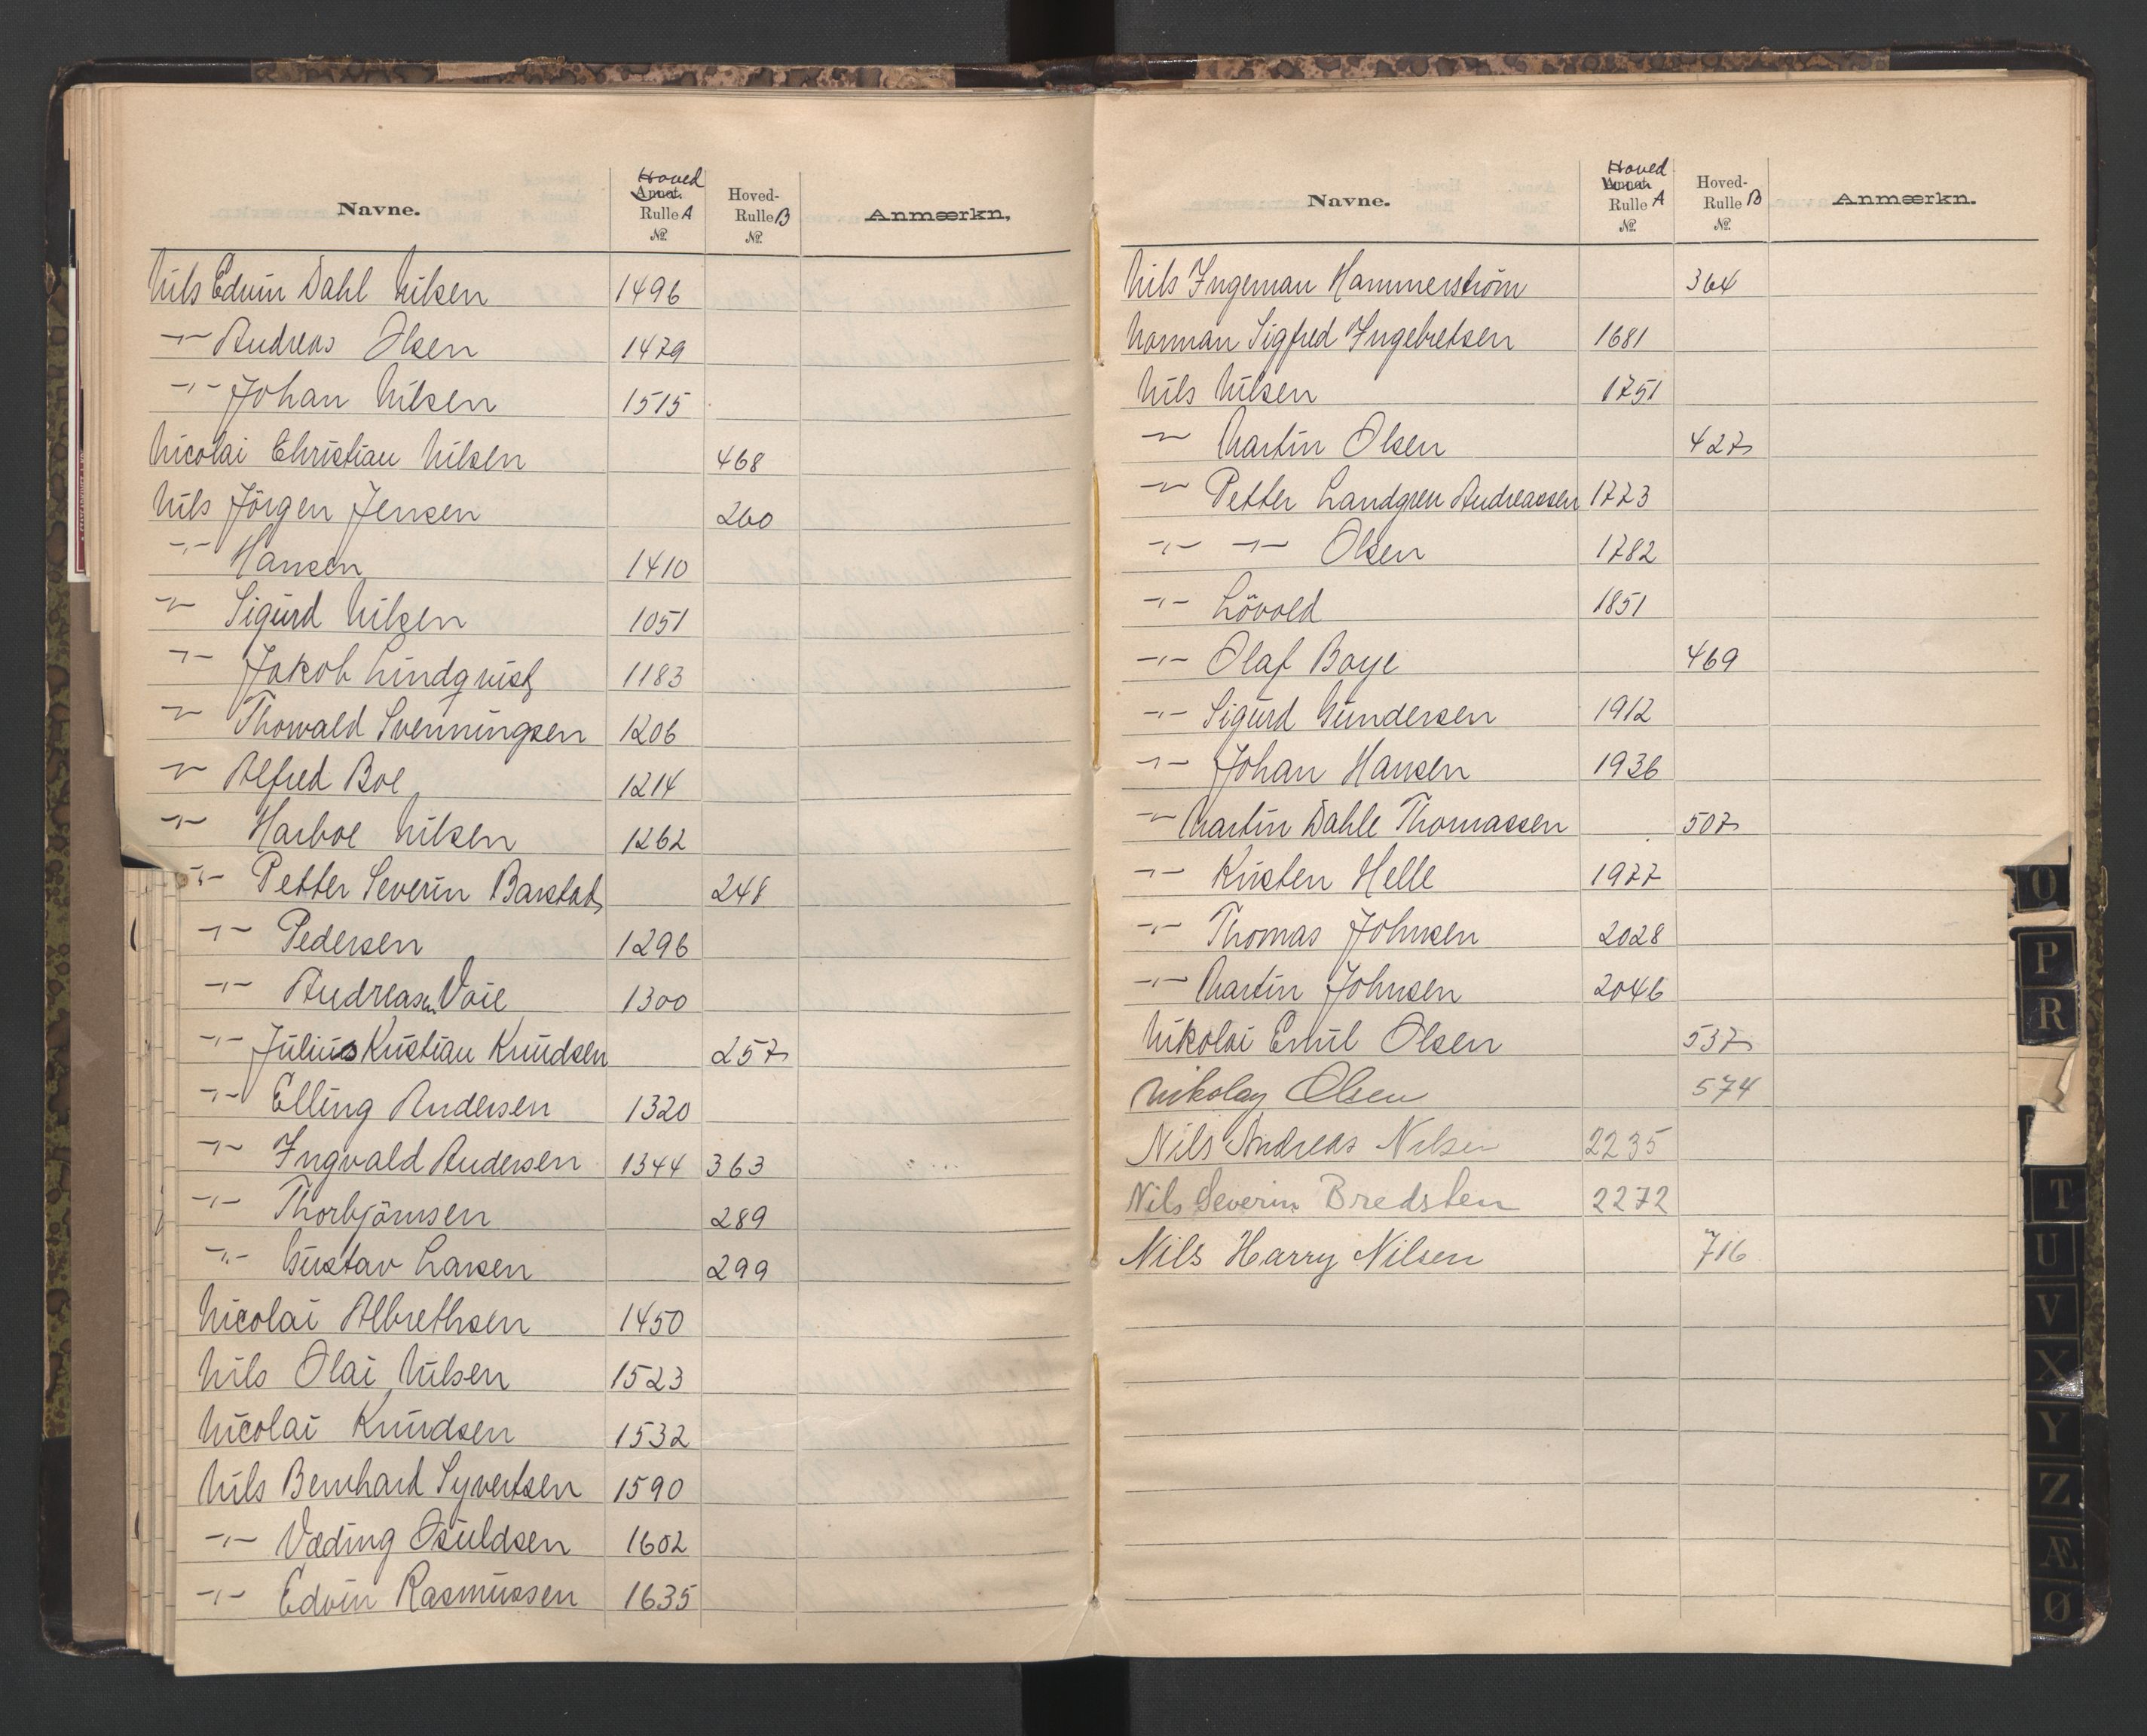 Navne. Hoved Annot. Rulle A № Hoved- Rulle B № Anmærkn.
Nils Edvin Dahl Nilsen 1496
-"- Andreas Olsen 1479
-"- Johan Nilsen 1515
Nicolai Christian Nilsen 468
Nils Jörgen Jensen 260
-"- Hansen 1410
-"- Sigurd Nilsen 1051
-"- Jakob Lindqvist 1183
-"- Thorvald Svenningsen 1206
-"- Alfred Boe 1214
-"- Harboe Nilsen 1262
-"- Petter Severin Barstad 248
-"- Pedersen 1296
-"- Andreasen Voie 1300
-"- Julius Kristian Knudsen 257
-"- Elling Andersen 1320
-"- Ingvald Andersen 1344 363
-"- Thorbjörnsen 289
-"- Gustav Larsen 299
Nicolai Albrethsen 1450
Nils Olai Nilsen 1523
Nicolai Knudsen 1532
Nils Bernhard Syvertsen 1590
-"- Væding Osuldsen 1602
-"- Edvin Rasmussen 1635
Navne. Hoved Annot. Rulle A № Hoved- Rulle B № Anmærkn.
Nils Ingeman Hammerström 364
Norman Sigfred Ingebretsen 1681
Nils Nilsen 1751
-"- Martin Olsen 427
-"- Petter Landgren Andreassen 1773
-"- -"- Olsen 1782
-"- Lövold 1851
-"- Olaf Boye 469
-"- Sigurd Gundersen 1912
-"- Johan Hansen 1936
-"- Martin Dahle Thomassen 507
-"- Kristen Helle 1977
-"- Thomas Johnsen 2028
-"- Martin Johnsen 2046
Nikolai Emil Olsen 537
Nikolay Olsen 574
Nils Andreas Nilsen 2235
Nils Severin Bredsten 2272
Nils Harry Nilsen 716
O
P
R
T
U
V
X
Y
Z
Æ
Ø